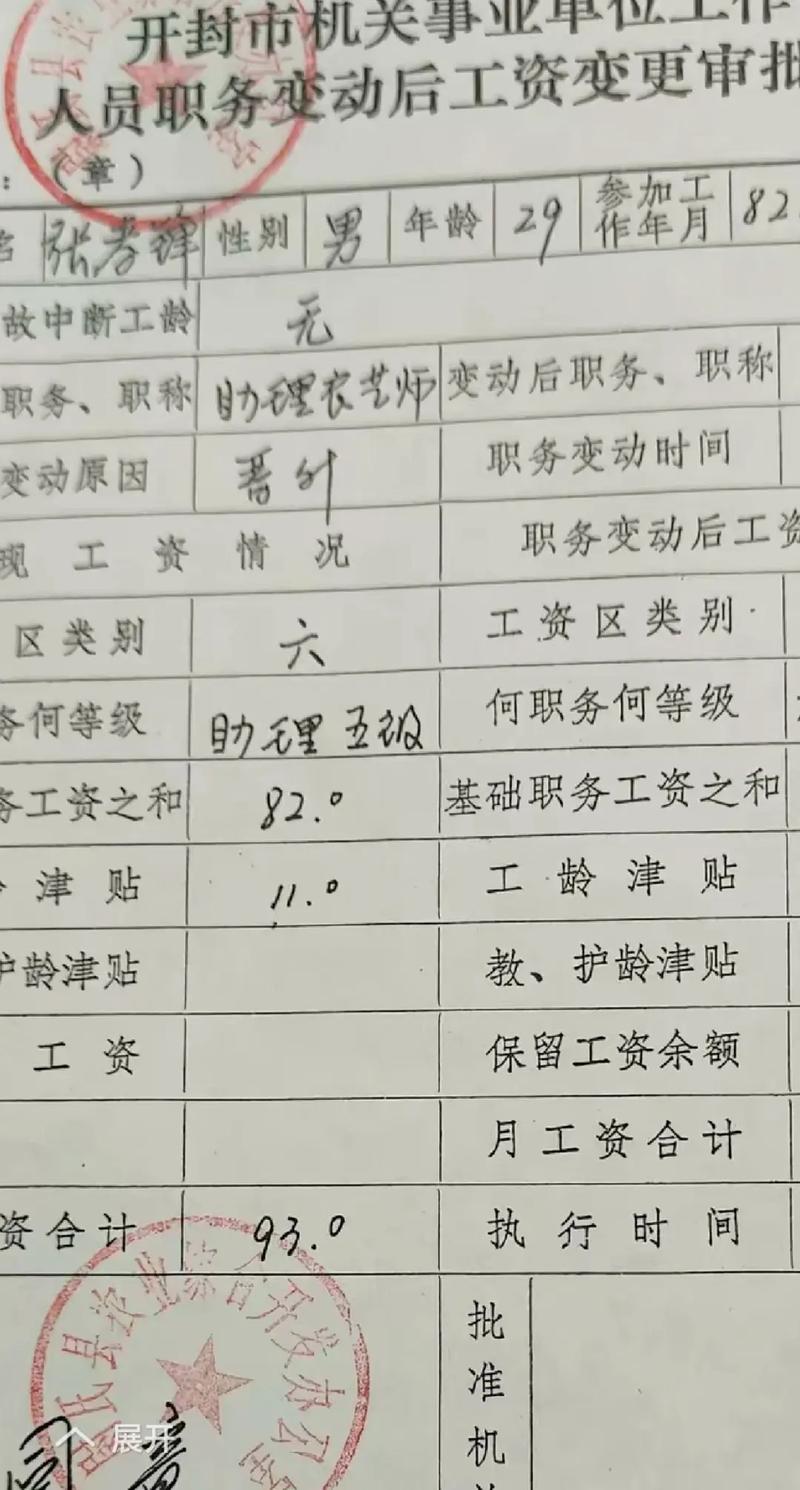 开封市机关事业单位工作
人员职务变动后工资变更审批
：（章）
名 张孝锋 性别 男 年龄 29 参加工作年月 82.
故中断工龄 无
职务、职称 助理农艺师 变动后职务、职称
变动原因 晋升 职务变动时间
现工资情况 职务变动后工资
区类别 六 工资区类别
务何等级 助理五级 何职务何等级
务工资之和 82.0 基础职务工资之和
津贴 11.0 工龄津贴
护龄津贴 教、护龄津贴
工资 保留工资余额
月工资合计
资合计 93.0 执行时间
县农业综合开发办公室
批准机关
同意
展开